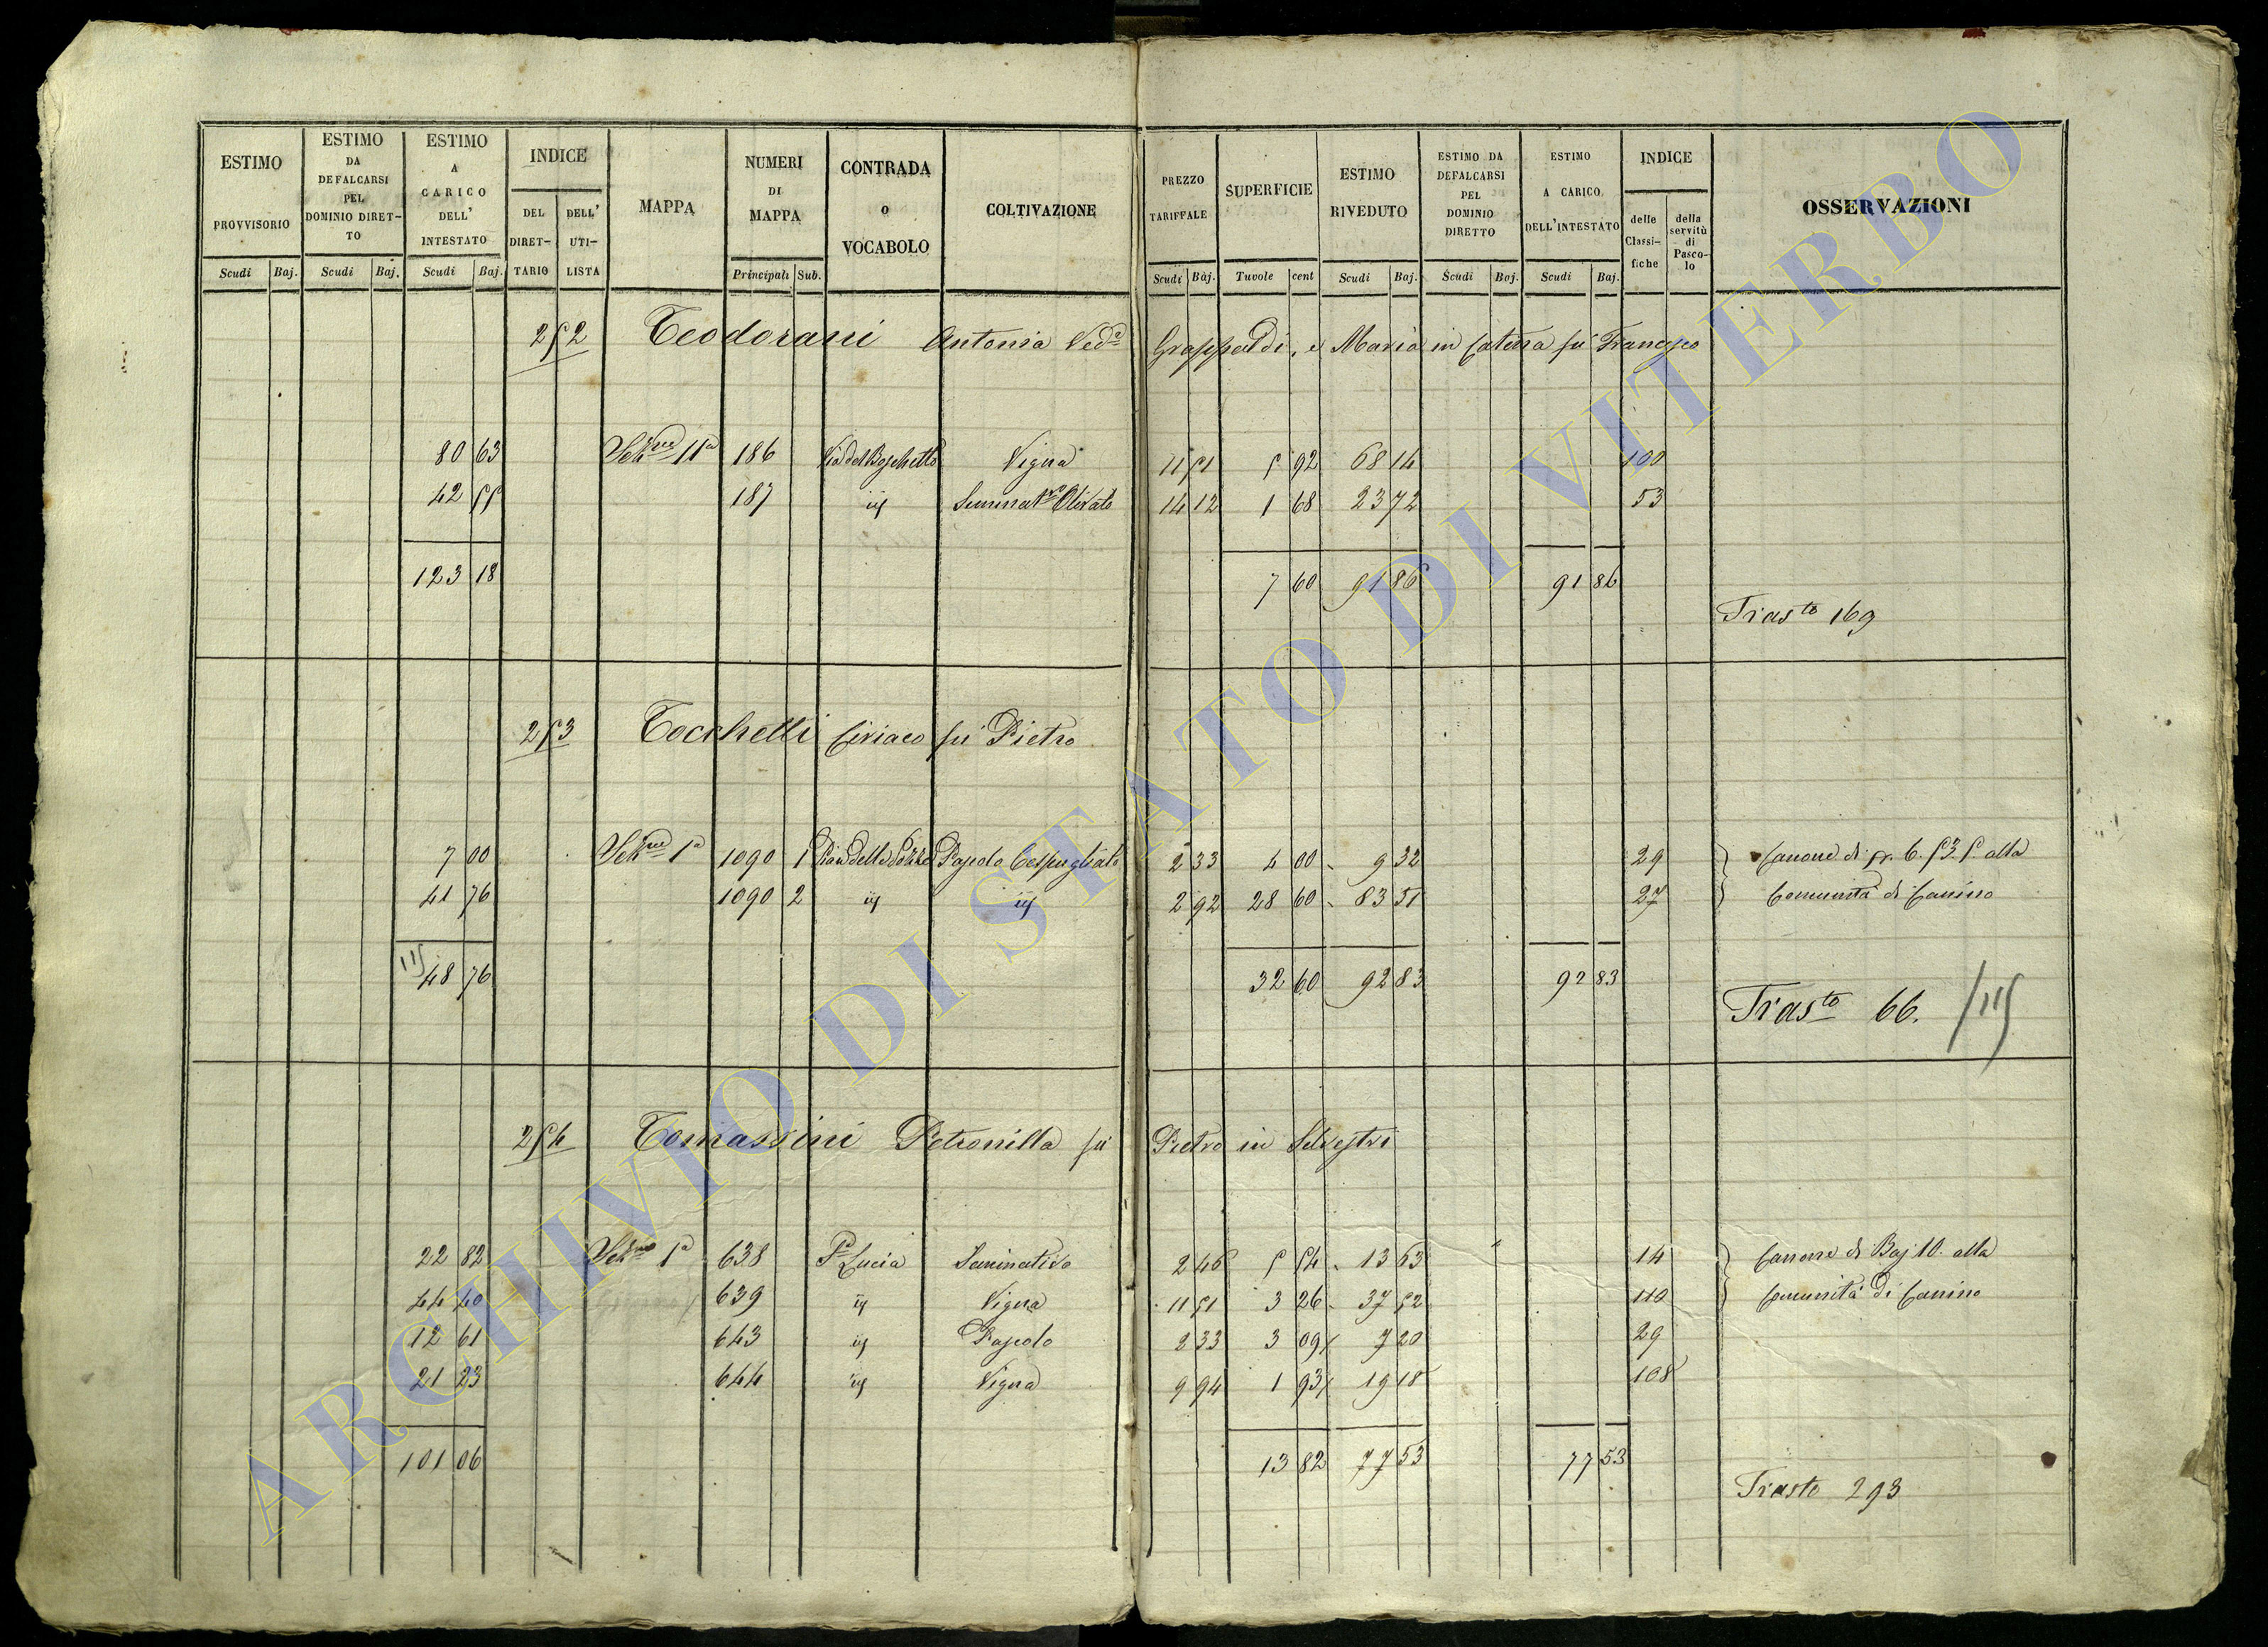 ESTIMO PROVVISORIO Scudi Baj.
ESTIMO DA DEFALCARSI PEL DOMINIO DIRET-TO Scudi Baj.
ESTIMO A CARICO DELL' INTESTATO Scudi Baj.
INDICE DEL DIRET-TARIO DELL' UTI-LISTA
MAPPA
NUMERI DI MAPPA Principali Sub.
CONTRADA o VOCABOLO
COLTIVAZIONE
PREZZO TARIFFALE Scudi Baj.
SUPERFICIE Tavole cent
ESTIMO RIVEDUTO Scudi Baj.
ESTIMO DA DEFALCARSI PEL DOMINIO DIRETTO Scudi Baj.
ESTIMO A CARICO DELL'INTESTATO Scudi Baj.
INDICE delle Classi-fiche della servitù di Pasco-lo
OSSERVAZIONI
252 Teodorani Antonia Ved.a Grappaldi, e Maria in Catena fu Francesco
80 63 Sez.ne 11a 186 Via del Boschetto Vigna 11 51 5 92 68 14 100
42 55 187 iij Seminat.vo Olivato 14 12 1 68 23 72 53
123 18 7 60 91 86 91 86
Tras.to 169
253 Tocchetti Ciriaco fu Pietro
7 00 Sez.ne 1a 1090 1 Pascolo Cespugliato 2 33 4 00 9 32 29 Canone di sc. 6. 53. 5 alla
41 76 1090 2 iij iij 2 92 28 60 83 51 27 Comunità di Canino
115 48 76 32 60 92 83 92 83
Tras.to 66. 115
254 Tomassini Petronilla fu Pietro in Silvestri
22 82 Sez.ne 1a 638 S.a Lucia Seminativo 2 46 5 54 13 63 14 Canone di Baj 10. alla
44 40 639 iij Vigna 11 51 3 26 37 52 110 Comunità di Canino
12 61 643 iij Pascolo 2 33 3 09 7 20 29
21 23 644 iij Vigna 9 94 1 93 19 18 108
101 06 13 82 77 53 77 53
Trasto 293
ARCHIVIO DI STATO DI VITERBO